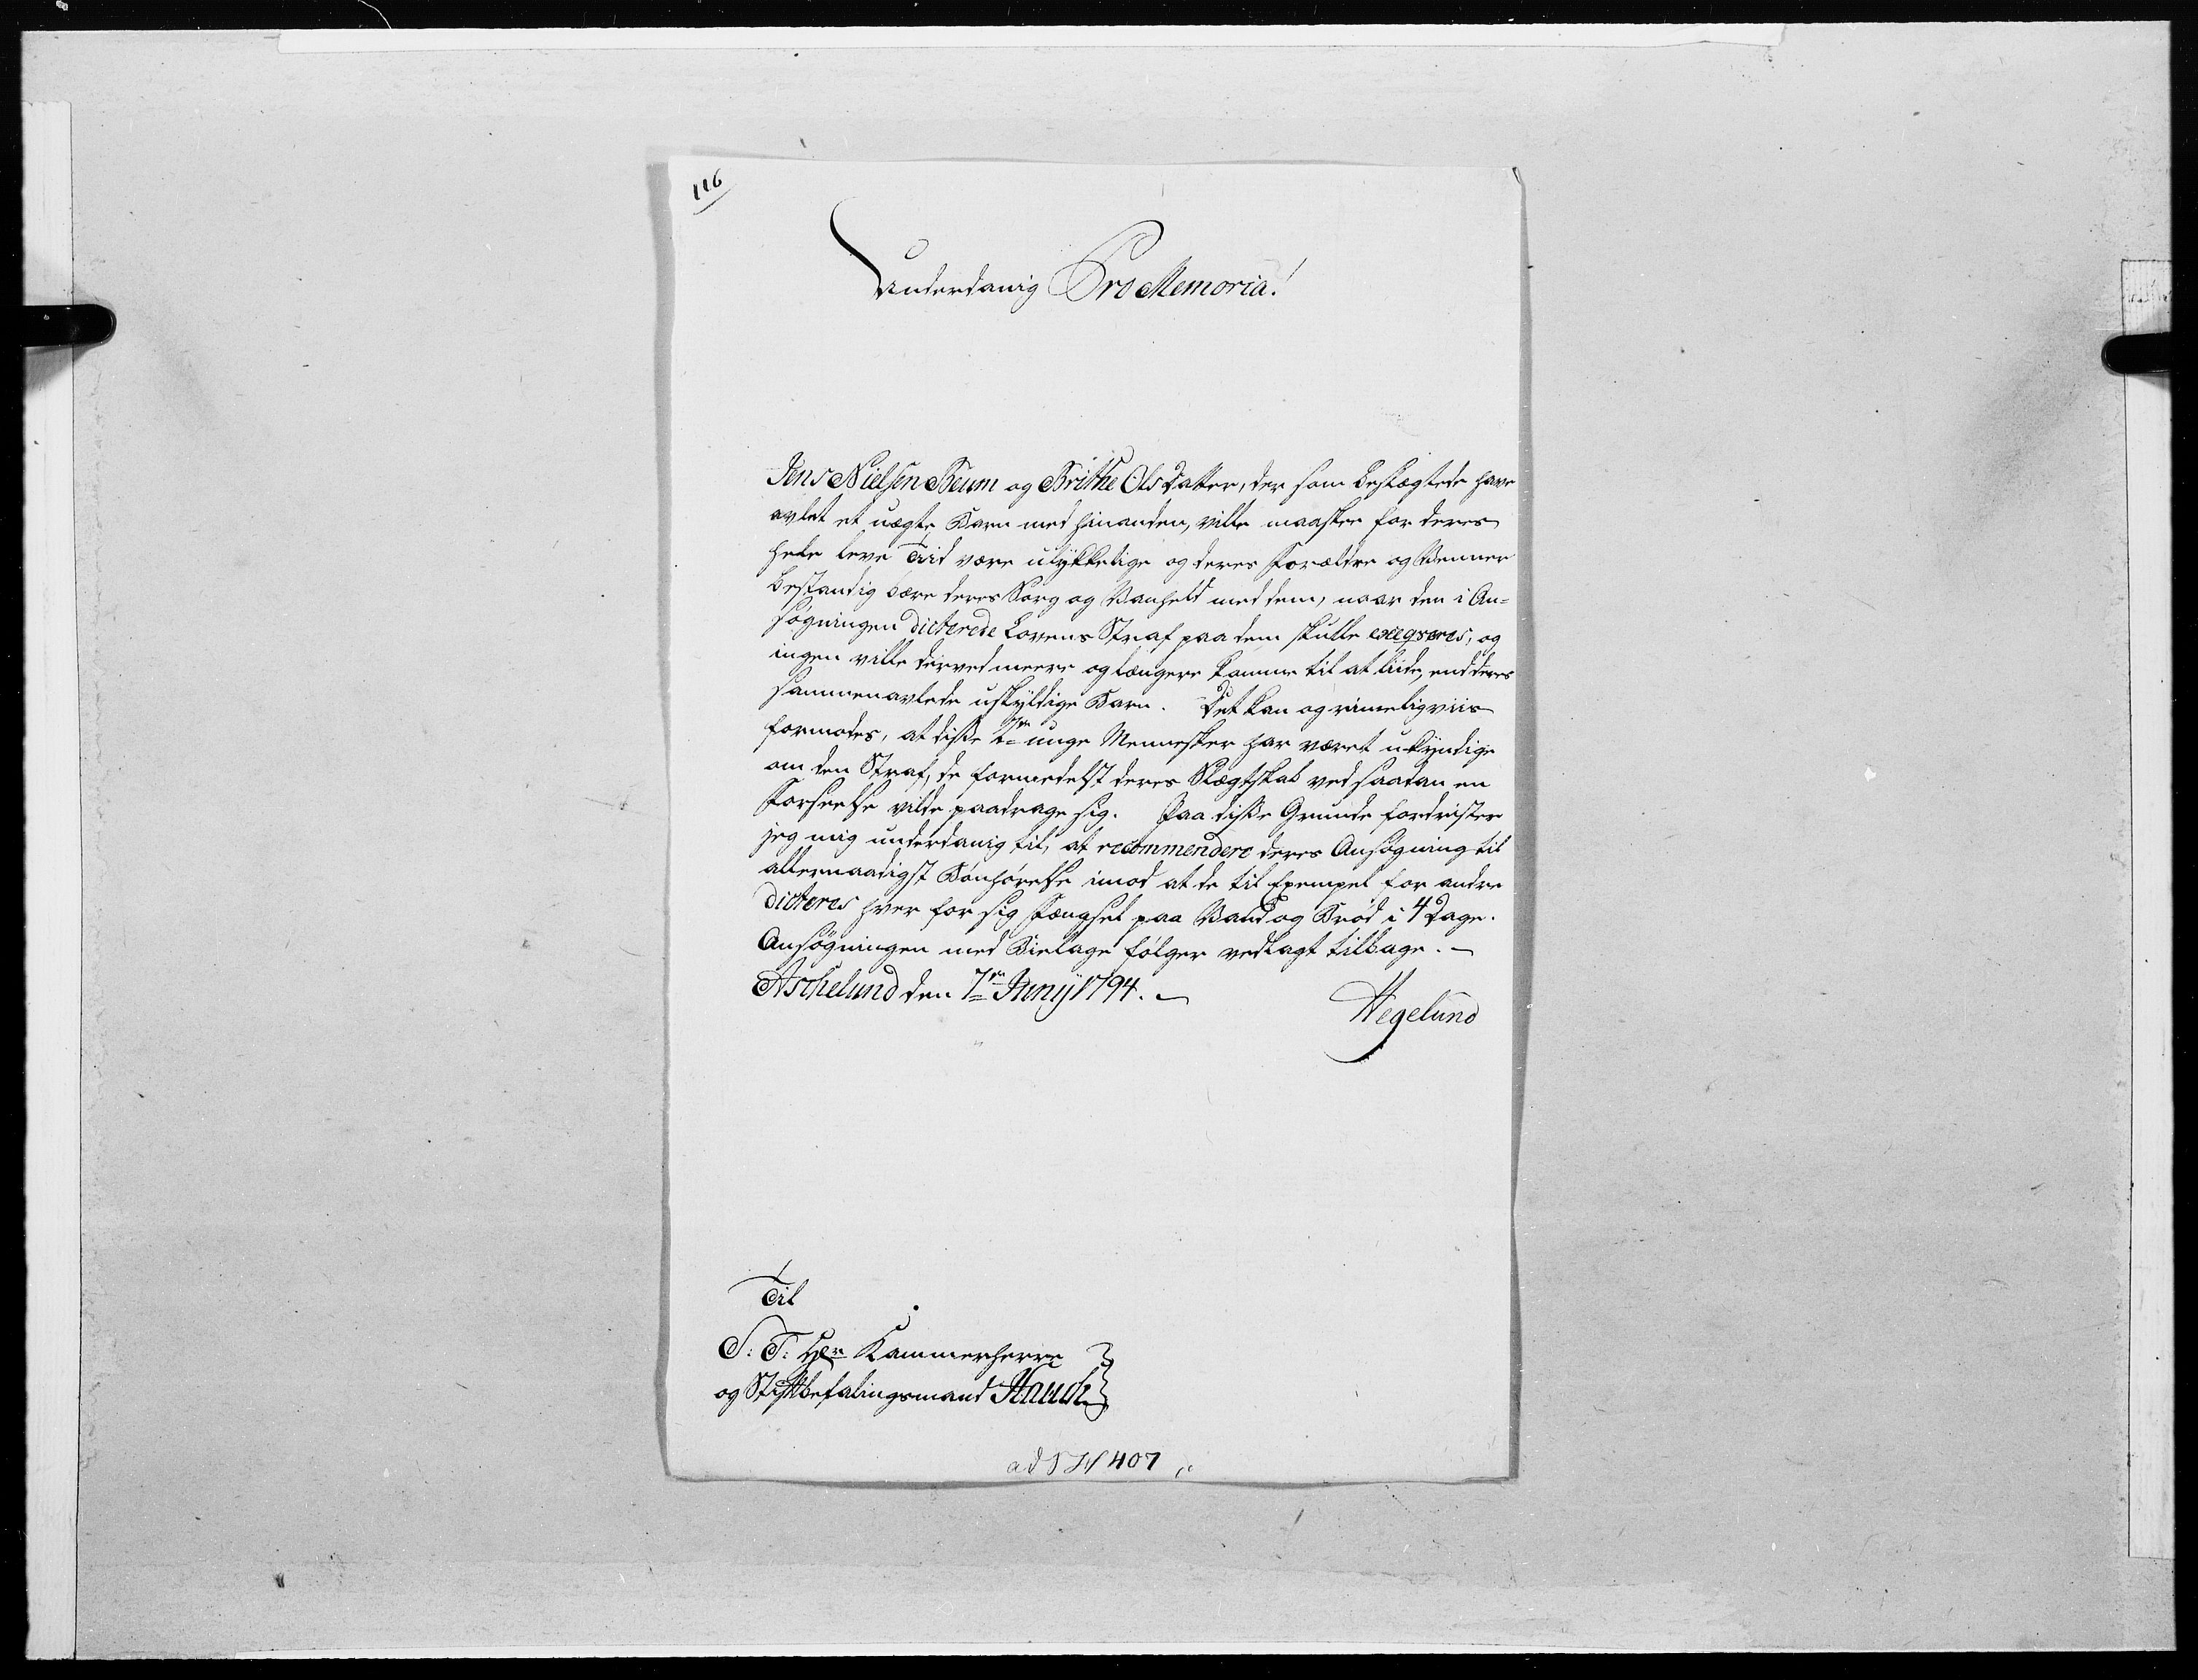 116
Underdanig Pro Memoria!
Jens Nielsen Beum og Brithe OlsDatter, der som beslægtede have
avlet et uægte Barn med hinanden, ville maaskee for deres
hele leve Tiid være ulykkelige og deres Forældre og Venner
bestandig bære deres Sorg og Vanheld med dem, naar den i An=
søgningen dicterede Lovens Straf paa dem skulle exeqveres, og
ingen ville derved meere og længere komme til at liide, end deres
sammenavlede uskyldige Barn. Det kan og rimeligviis
formodes, at disse unge Mennesker har været ukyndige
om den Straf, de formedelst deres Slægtskab ved saadan en
Forseelse vilde paadrage sig. Paa disse Grunde fordrister
jeg mig underdanig til, at recommendere deres Ansøgning til
allernaadigst Bønhørelse imod at de til Exempel for andre
dicteres hver for sig Fængsel paa Vand og Brød i 4 Dage.
Ansøgningen med Bielage følger vedlagt tilbage. –
Aschelund den 7de Junij 1794. –
Hegelund
Til
S: T: Hr Kammerherre
og Stiftbefalingsmand Hauch
407